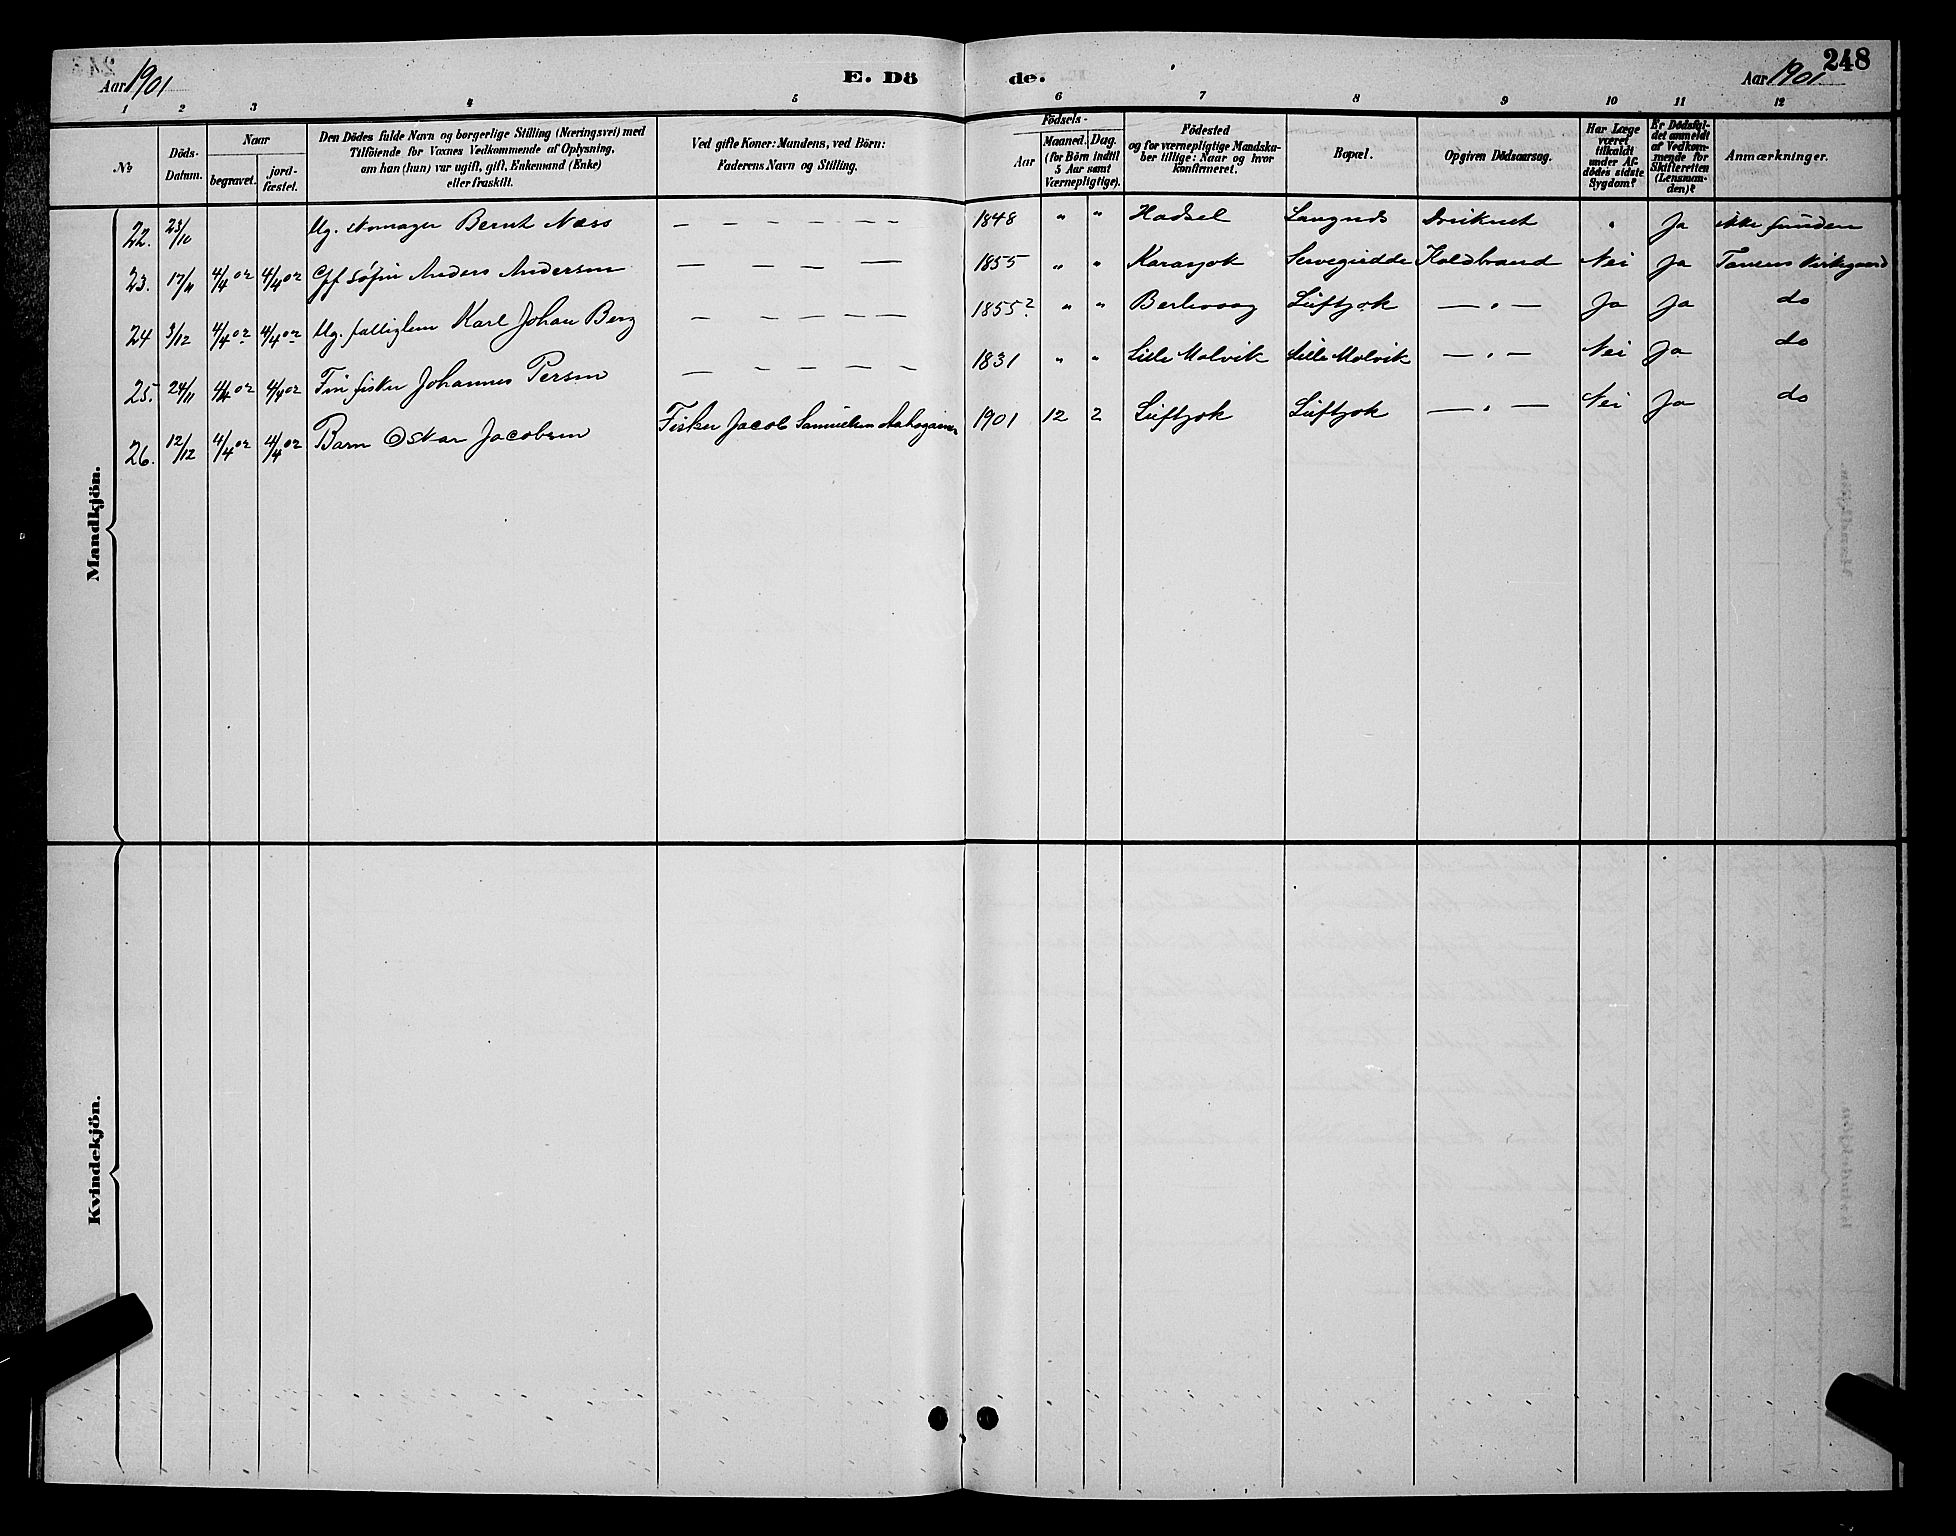 248
Aar 1901 E. Dö de. Aar 1901
1 2 3 4 5 6 7 8 9 10 11 12
№ Döds-Datum. Naar begravet. jord-fæstet. Den Dödes fulde Navn og borgerlige Stilling (Næringsvei) med Tilföiende for Voxnes Vedkommende af Oplysning, om han (hun) var ugift, gift, Enkemand (Enke) eller fraskilt. Ved gifte Koner: Mandens, ved Börn: Faderens Navn og Stilling. Födsels- Aar Maaned. Dag. (for Börn indtil 5 Aar samt Værnepligtige). Födested og for værnepligtige Mandskaber tillige: Naar og hvor konfirmeret. Bopæl. Opgiven Dödsaarsag. Har Læge været tilkaldt under Afdödes sidste Sygdom? Er Dödsfaldet anmeldt af Vedkommende for Skifteretten (Lensmanden)? Anmærkninger.
Mandkjön.
22. 23/10 Ug. Bernt Næss — — — — — — 1848 " " Hadsel Langnes Druknet " Ja ikke funden
23. 17/11 4/4 02 4/4 02 Anders Andersen — — — — 1855 " " Karasjok Koldbrand Nei Ja Tanens Kirkegaard
24 3/12 4/4 02 4/4 02 Ug. fattiglem Karl Johan Berg — — — — — 1855? " " Berlevaag Luftjok — " — Ja Ja do
25. 24/11 4/4 02 4/4 02 Fin fisker Johannes Persen — — — — — 1831 " " Lille Molvik Lille Molvik — " — Nei Ja do
26. 12/12 4/4 02 4/4 02 Barn Oskar Jacobsen Fisker Jacob Samuelsen 1901 12 2 Luftjok Luftjok — " — Nei Ja do
Kvindekjön.